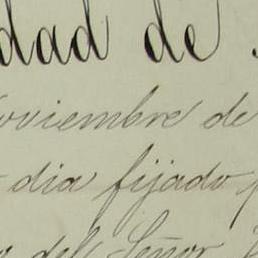 dad de
oviembre de
dia fijado
del Señor